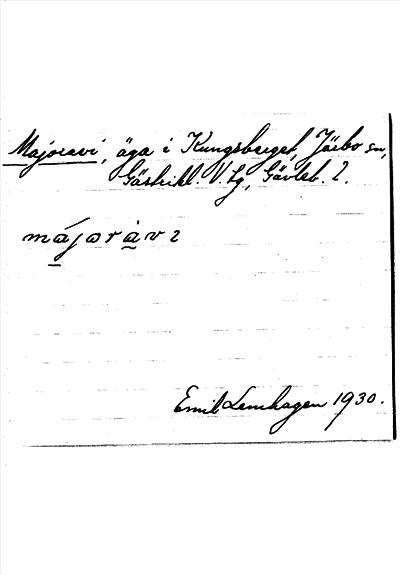 Majoravi, äga i Kungsberget, Järbo sn,
Gästrikl. V. tg, Gävleb. l.
májoràvı
Emil Lenhagen 1930.